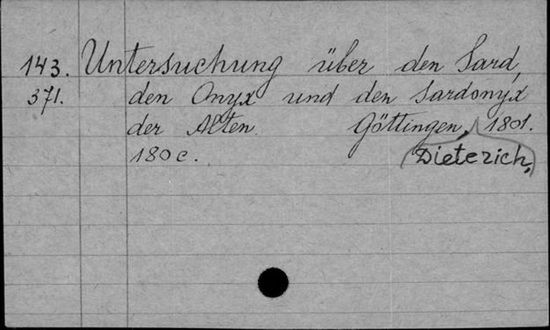 143. Untersuchung über den Sard,
371. den Onyx und den Sardonyx
der Alten. Göttingen, 1801.
180 c. (Dieterich,